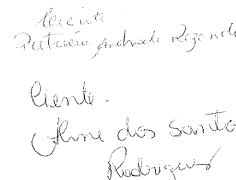 Ciente
Andrade Rezende
Ciente.
Aline dos Santos
Rodrigues